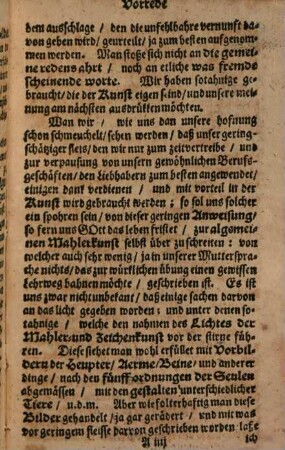 Vorrede
dem ausschlage / den die unfehlbahre vernunft da-
von geben wird / geurteilt / ja zum besten aufgenom-
men werden. Man stoße sich nicht an die gemei-
ne redens ahrt / noch an etliche was fremd-
scheinende worte. Wir haben sotahnige ge-
braucht / die der Kunst eigen seind / und unsere mei-
nung am nächsten ausdrükken möchten.
Wan wir / wie uns dan unsere hofnung
schon schmeuchelt / sehen werden / daß unser gering-
schätziger fleis / den wir nur zum zeitvertreibe / und
zur verpaufung von unsern gewöhnlichen Berufs-
geschäften / den liebhabern zum besten angewendet /
einigen dank verdienen / und mit vorteil in der
Kunst wird gebraucht werden; so sol uns solcher
ein spohren sein / von dieser geringen Anweisung /
so fern uns GOtt das leben fristet / zur algemei-
nen Mahlerkunst selbst über zu schreiten: von
welcher auch sehr wenig / ja in unserer Muttersprа-
che nichts / das zur würklichen übung einen gewissen
Lehrweg bahnen möchte / geschrieben ist. Es ist
uns zwar nicht unbekant / daß einige sachen darvon
an das licht gegeben worden; und unter denen so-
tahnige / welche den nahmen des Lichtes der
Mahler- und Zeichenkunst vor der stirne füh-
ren. Diese siehet man wohl erfüllet mit Vorbil-
dern der Heupter / Aerme / Beine / und anderer
dinge / nach den fünff ordnungen der Seulen
abgemässen / mit den gestalten unterschiedlicher
Tiere / u.d.m. Aber wie solterhaftig man diese
Bilder gehandelt / ja gar gerädert / und mit was
vor geringem fleisse darvon geschrieben worden / laße
A iiij ich